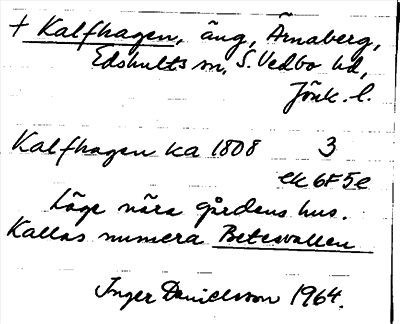 + Kalfhagen, äng, Ärnaberg,
Edshults sn, S. Vedbo hd,
Jönk. l.
Kalfhagen ka 1808 3
ek 6F5e
Läge nära gårdens hus.
Kallas numera Betesvallen
Inger Danielsson 1964.